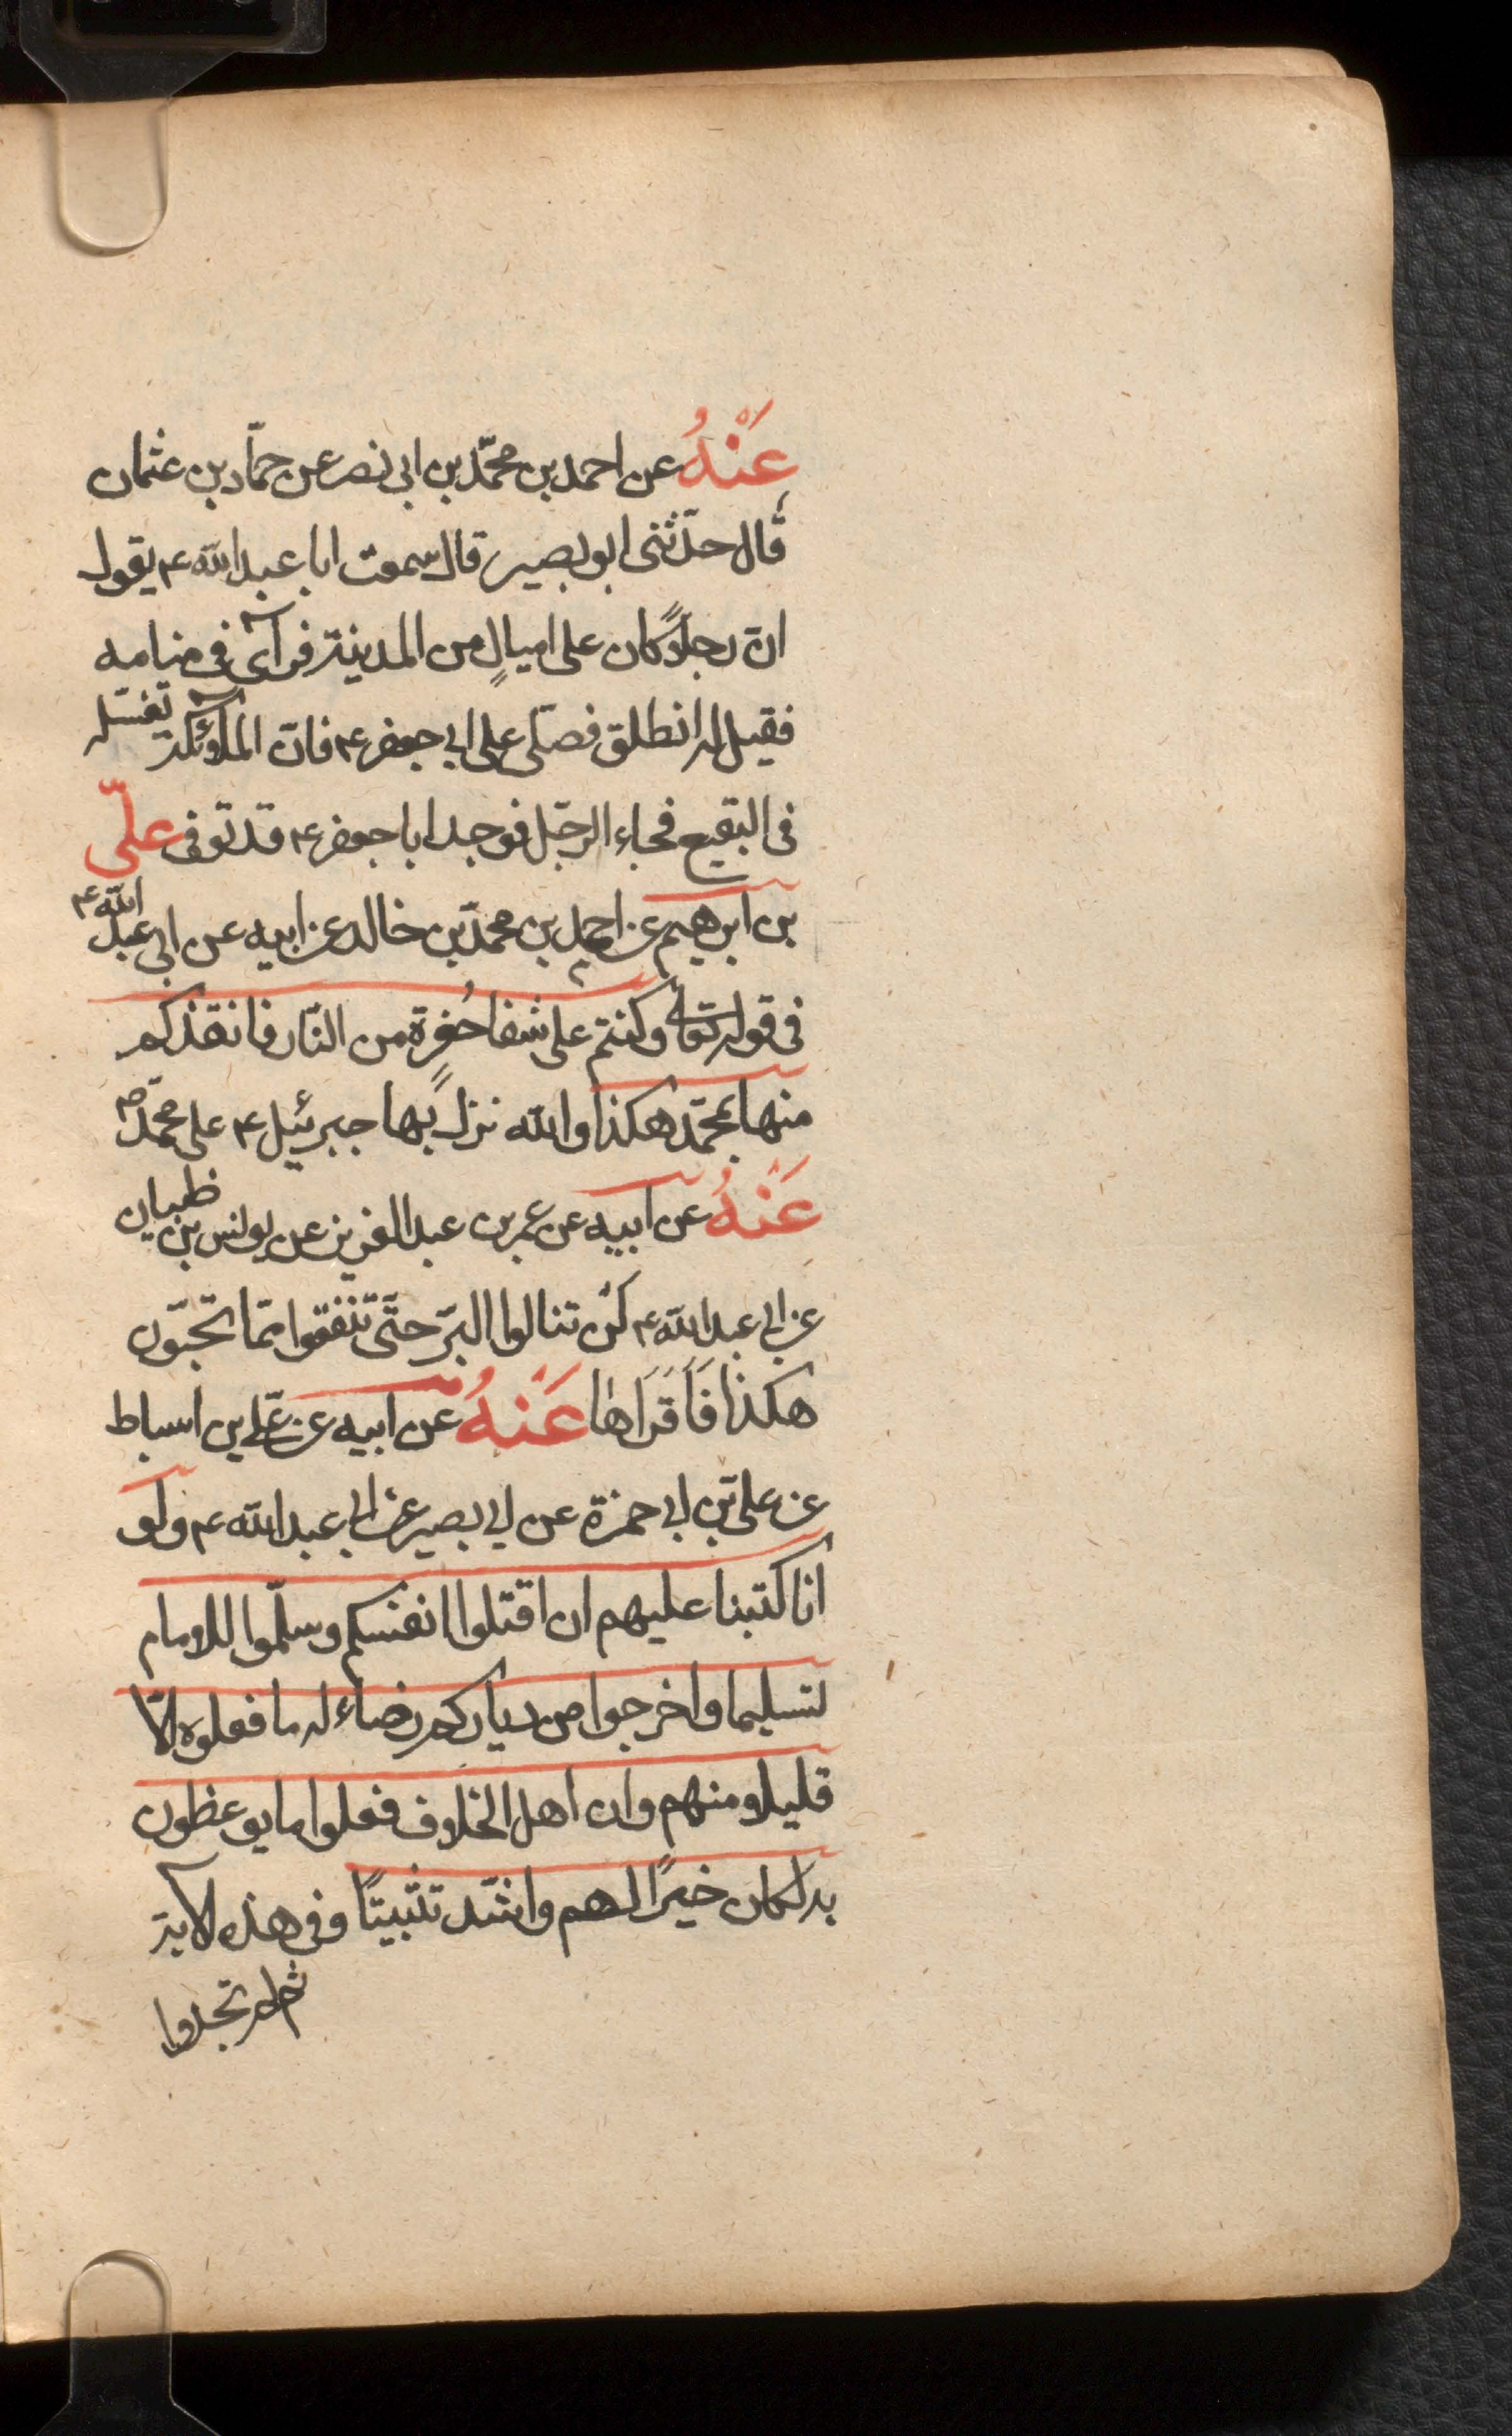 عَنْهُ عن احمد بن محمّد بن ابی نصر عن حمّاد بن عثمان
قال حدّثنی ابو بصیر قال سمعت ابا عبد الله ع یقول
انّ رجلاً کان علی امیالٍ من المدینة فرآی فی منامه
فقیل له انطلق فصلّی علی ابی جعفر ع فانّ الملآئکة تغسّله
فی البقیع فجاء الرجل فوجد ابا جعفر ع قد توفی علیّ
بن ابرهیم عن احمد بن محمّد بن خالد عن ابیه عن ابی عبد الله ع
فی قوله تعالی وکنتم علی شفا حُفرة من النّار فانقذکم
منها بمحمّد هکذا والله نزل بها جبرئیل ع علی محمّد ص
عَنْهُ عن ابیه عن عمر بن عبد العزیز عن یونس بن ظبیان
عن ابی عبد الله ع لَن تنالوا البرّ حتّی تنفقوا ممّا تحبّون
هکذا فَاَقرَاها عَنْهُ عن ابیه عن علی بن اسباط
عن علی بن ابی حمزة عن ابی بصیر عن ابی عبد الله ع ولو
انا کتبنا علیهم ان اقتلوا انفسکم وسلّموا للامام
تسلیما واخرجوا من دیارکم رضاء له ما فعلوه الّا
قلیلا منهم وان اهل الخلاف فعلوا ما یوعظون
به لکان خیرًا لهم واشدّ تثبیتًا وفی هذه الآیة
ثم لم تجدوا